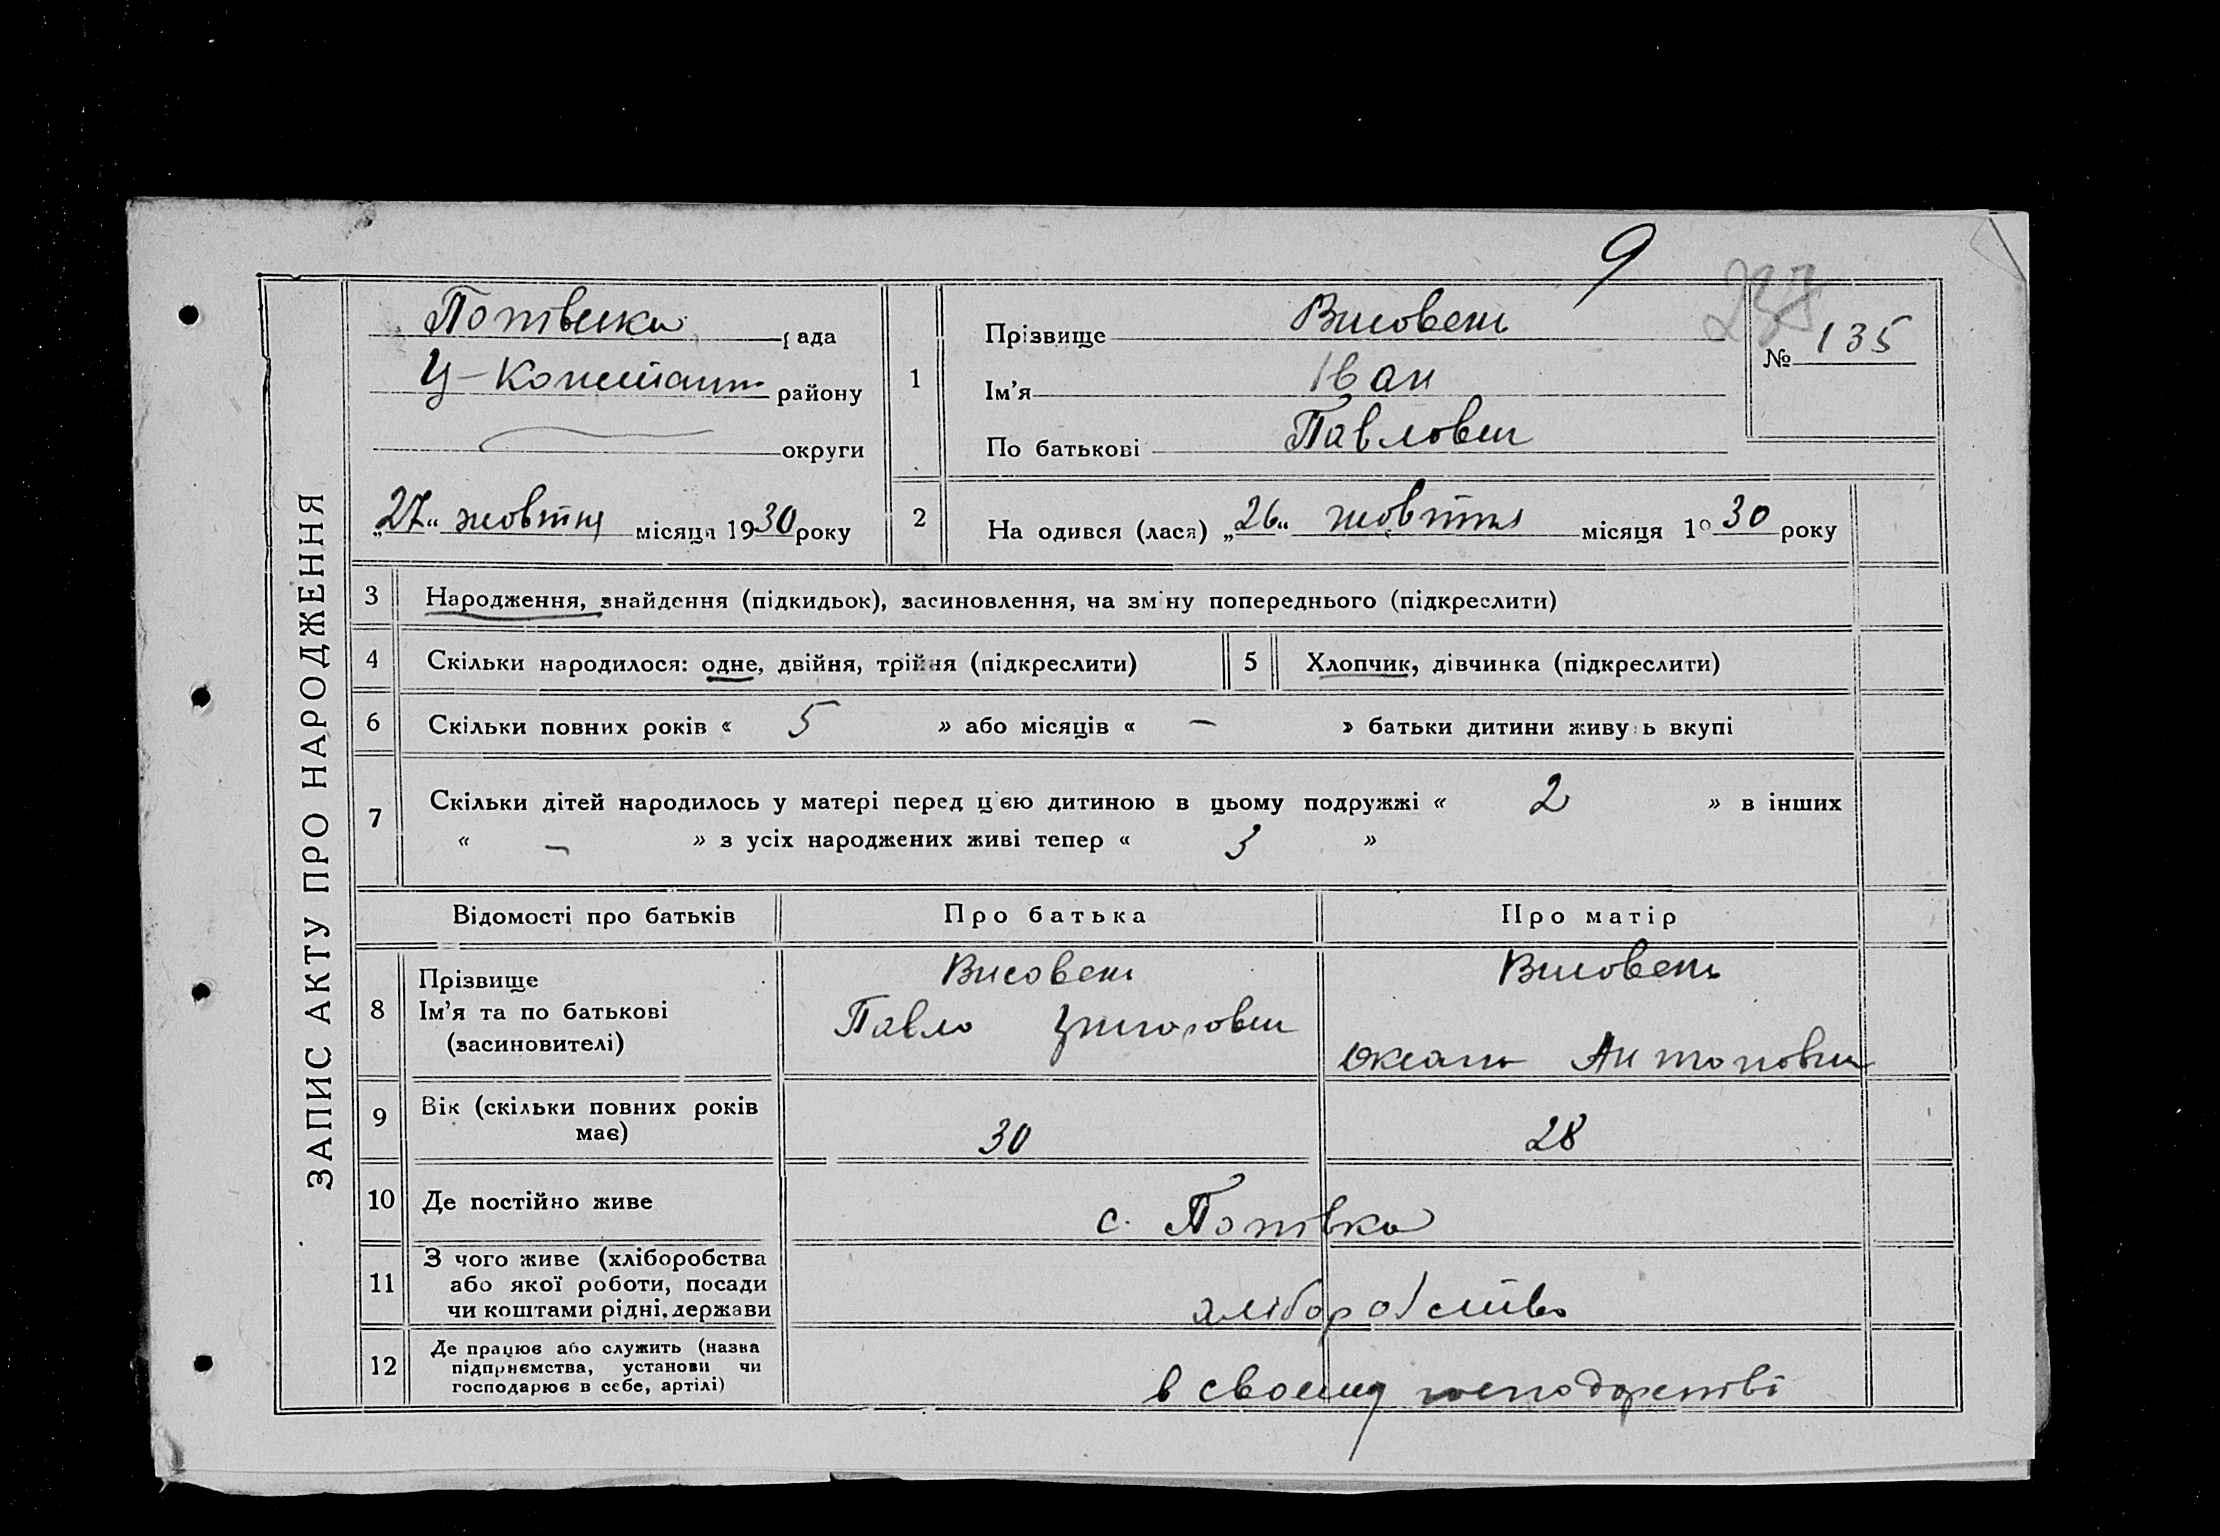 9
135
ЗАПИС АКТУ ПРО НАРОДЖЕННЯ
рада
района району
округи
„27“ жовтня місяця 1930 року
1
Прізвище Висовень
Ім’я Іван
По батькові Павлович
№ 135
2
На одився (лася) „26“ жовтня місяця 19 30 року
3
Народження, знайдення (підкидьок), засиновлення, на зміну попереднього (підкреслити)
4
Скільки народилося: одне, двійня, трійня (підкреслити)
5
Хлопчик, дівчинка (підкреслити)
6
Скільки повних років « 5 » або місяців « – » батьки дитини живуть вкупі
7
Скільки дітей народилось у матері перед цією дитиною в цьому подружжі « 2 » в інших
« – » з усіх народжених живі тепер « 3 »
Відомості про батьків
Про батька
Про матір
8
Прізвище
Ім’я та по батькові
(засиновителі)
Висовень
Павло Григорович
Висовень
9
Вік (скільки повних років
має)
30
28
10
Де постійно живе
с. Попівка
11
З чого живе (хліборобства
або якої роботи, посади
чи коштами рідні, держави
хліборобство
12
Де працює або служить (назва
підприємства, установи чи
господарює в себе, артілі)
в своему господарстві